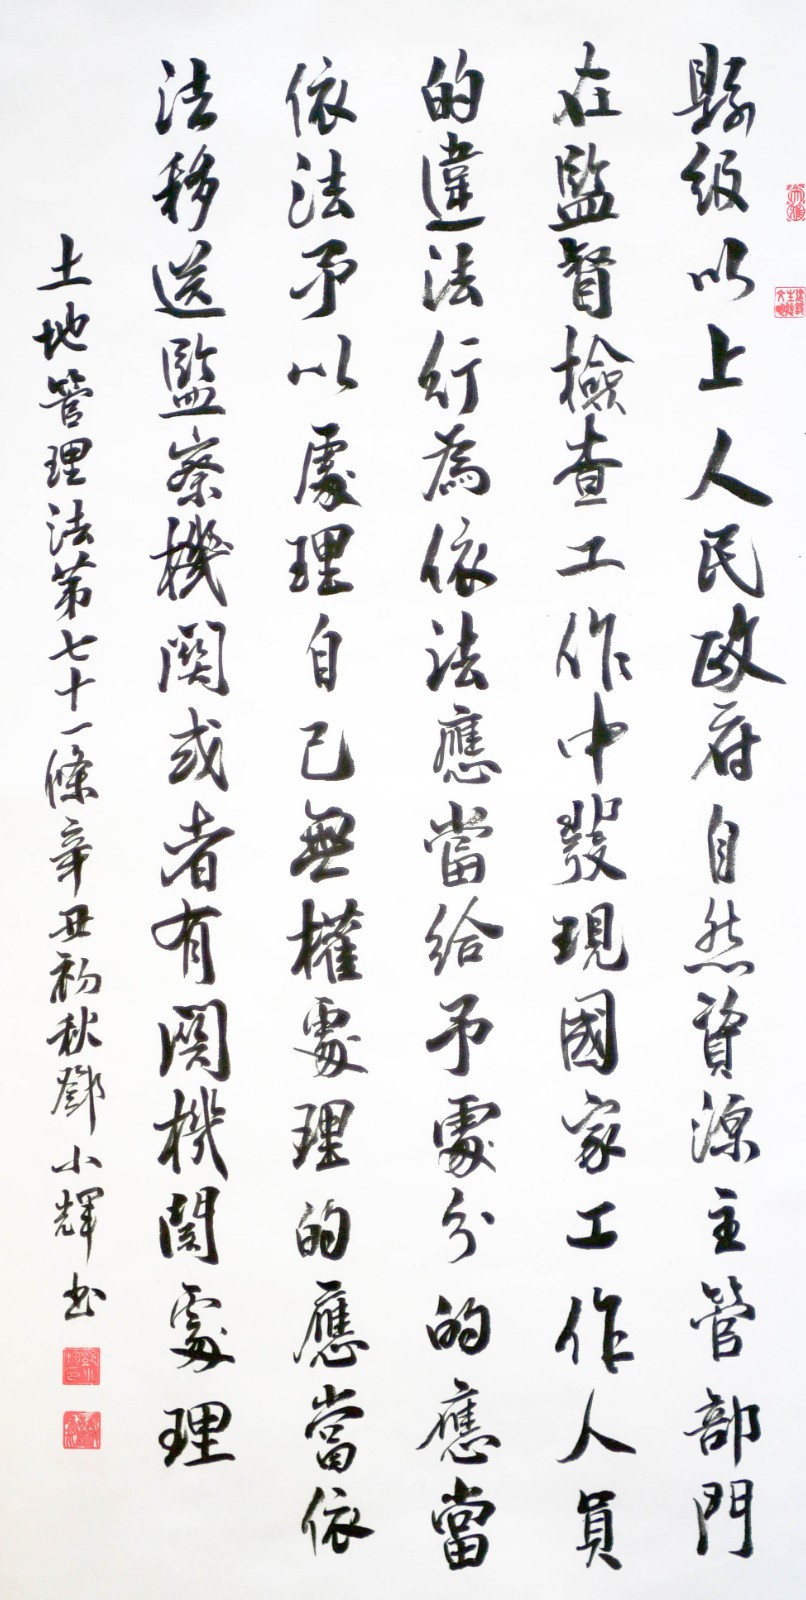 縣級以上人民政府自然資源主管部門
在監督檢查工作中發現國家工作人員
的違法行為依法應當給予處分的應當
依法予以處理自己無權處理的應當依
法移送監察機關或者有關機關處理
土地管理法第七十一條辛丑初秋鄧小輝书